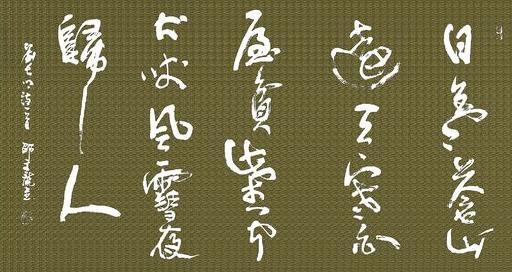 日暮蒼山
遠天寒白
屋貧柴門聞
犬吠風雪夜
歸人
劉長卿詩一首